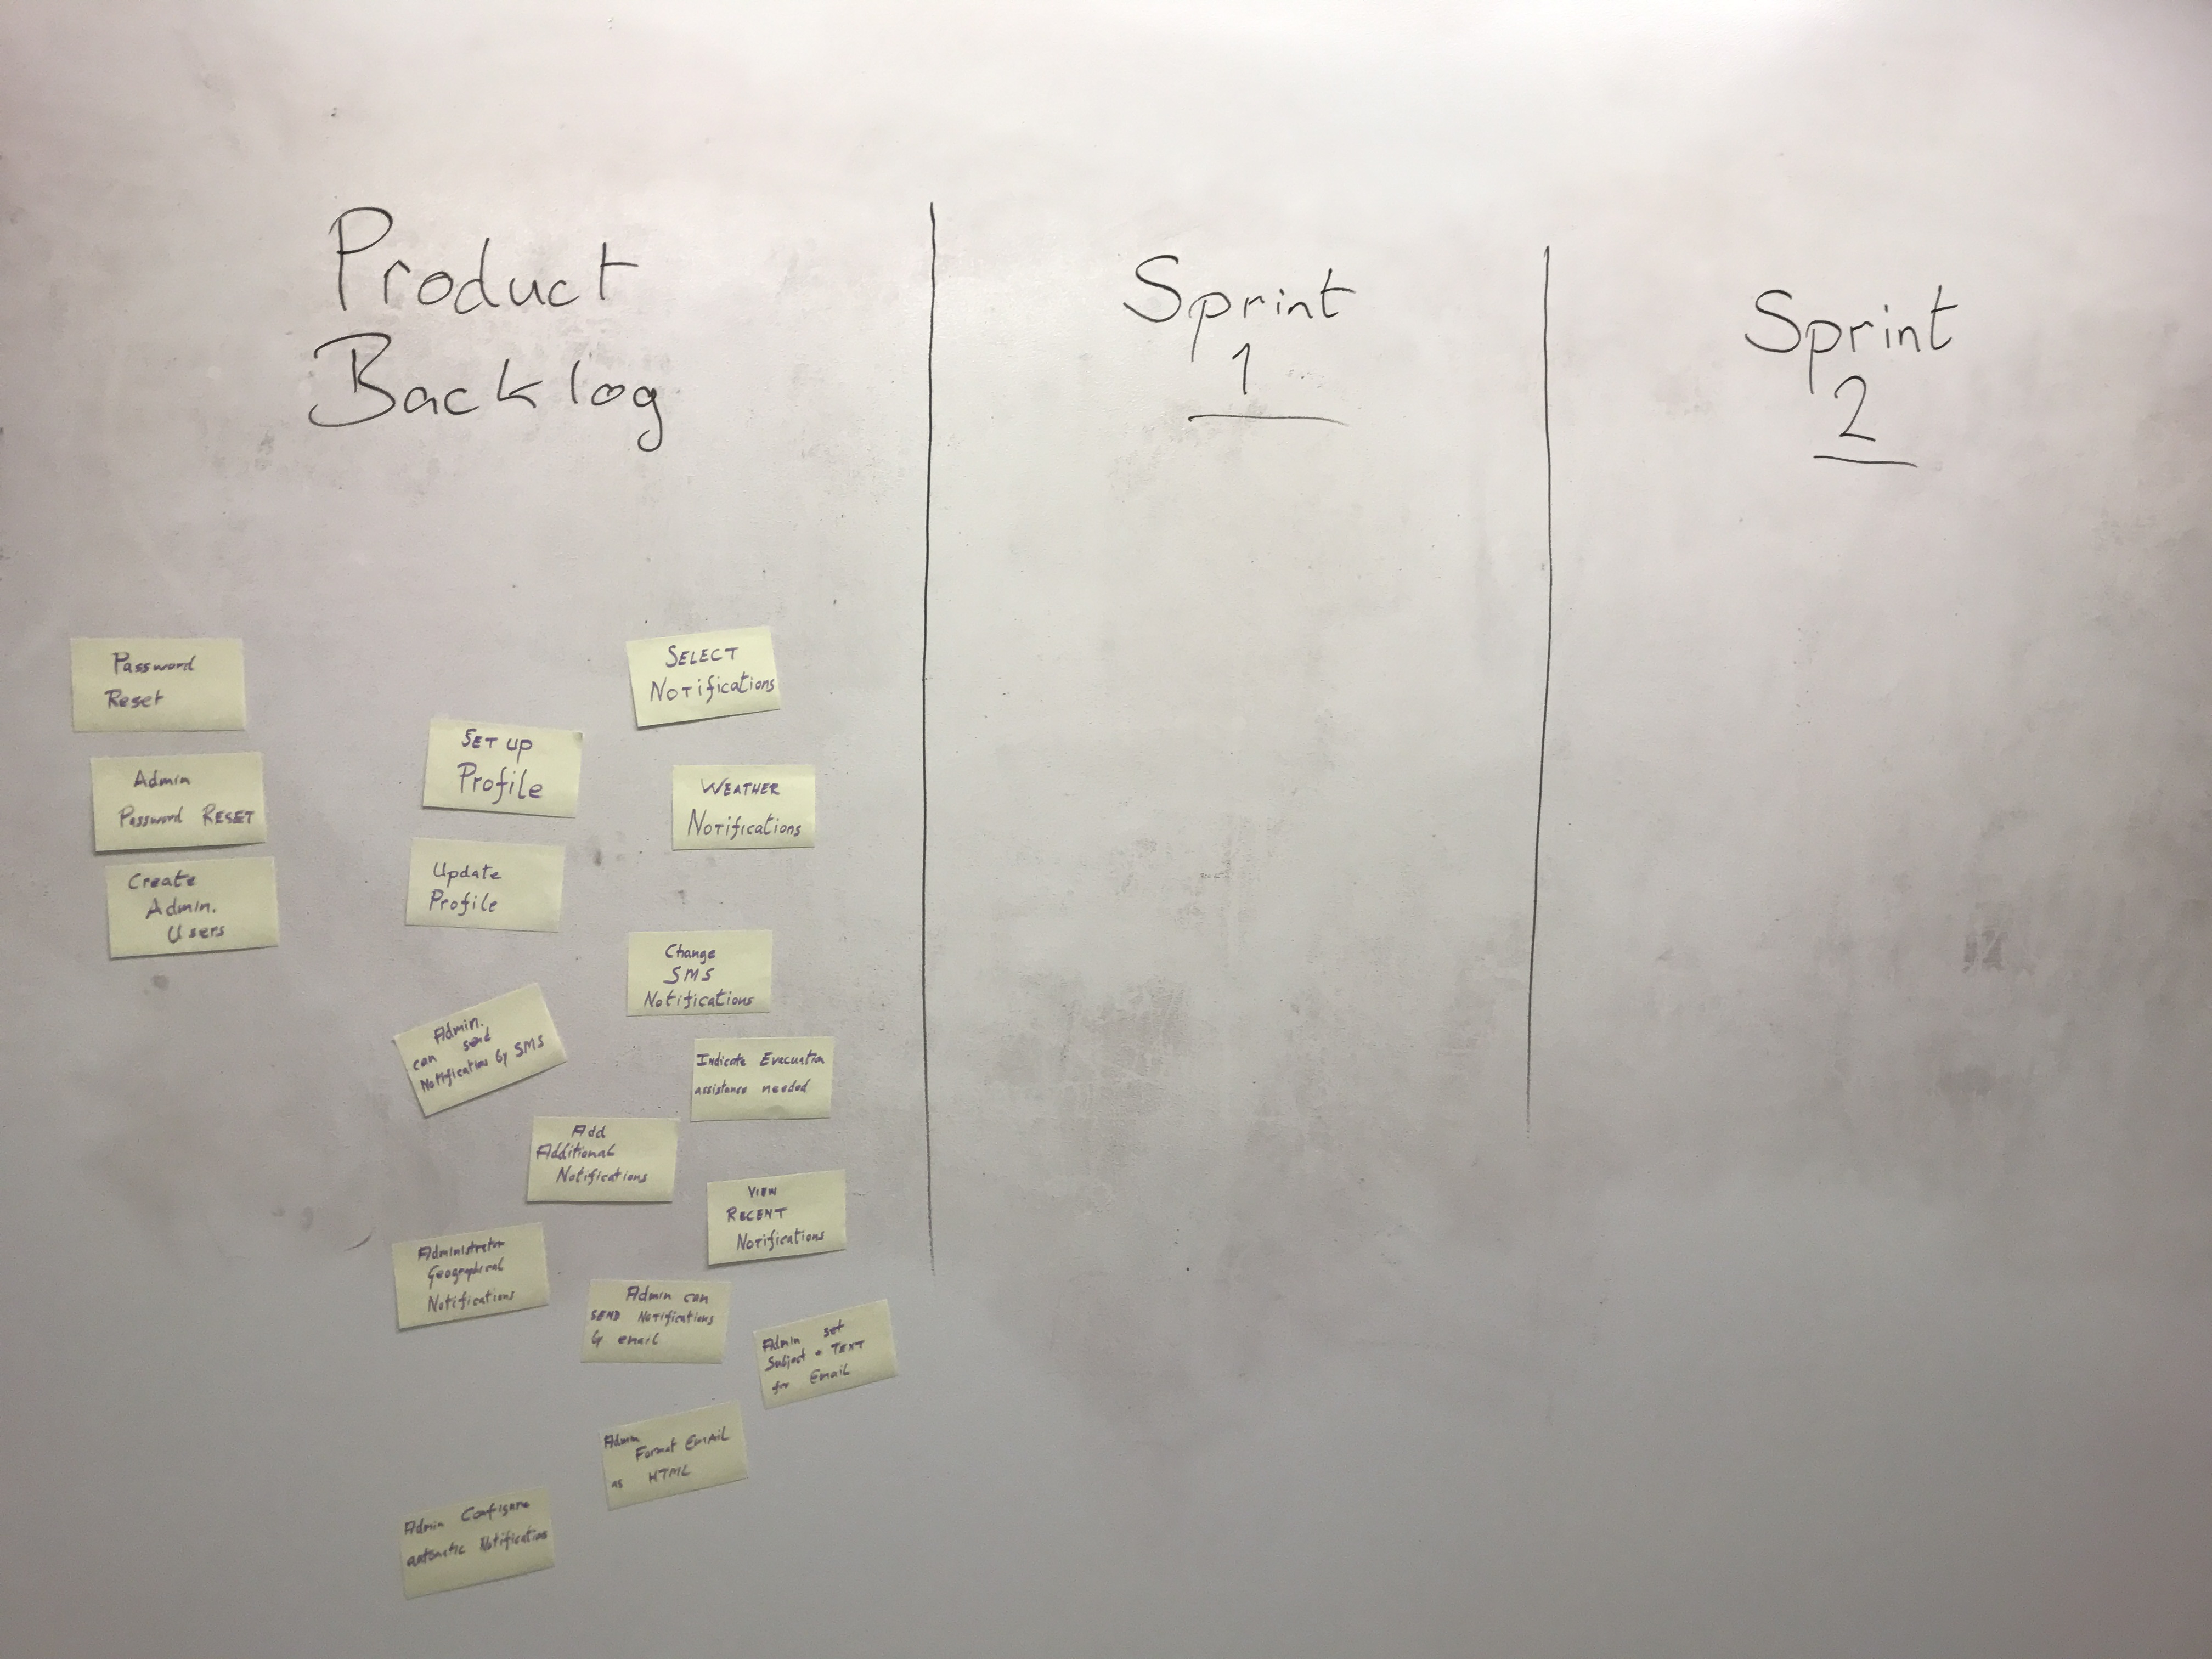 Product
Backlog
Sprint
1
Sprint
2
Password
Reset
Admin
Password RESET
Create
Admin.
Users
SET UP
Profile
Update
Profile
SELECT
Notifications
WEATHER
Notifications
Change
SMS
Notifications
Admin.
can send
Notifications by SMS
Indicate Evacuation
assistance needed
Add
Additional
Notifications
VIEW
RECENT
Notifications
Administrator
Geographical
Notifications
Admin can
SEND Notifications
by email
Admin set
Subject + TEXT
for Email
Admin
Format EMAIL
as HTML
Admin Configure
automatic Notification